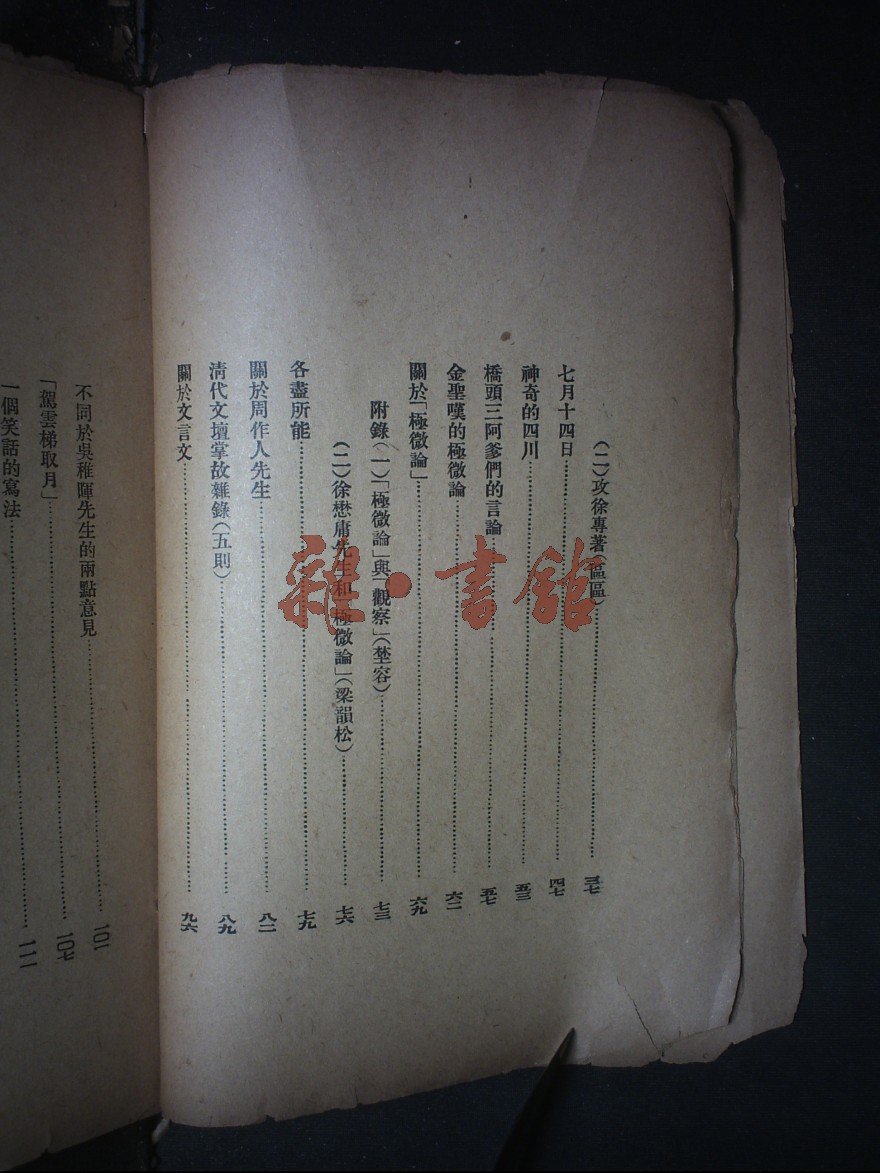 (二)攻徐專著(區區)……三七
七月十四日……四七
神奇的四川……五三
橋頭三阿爹們的言論……五七
金聖嘆的極微論……六二
關於「極微論」……六九
附錄(一)「極微論」與「觀察」(埜容)……七三
(二)徐懋庸先生和「極微論」(梁韻松)……七六
各盡所能……七九
關於周作人先生……八二
清代文壇掌故雜錄(五則)……八九
關於文言文……九六
不同於吳稚暉先生的兩點意見……一〇一
「駕雲梯取月」……一〇七
一個笑話的寫法……一一一
雜·書館